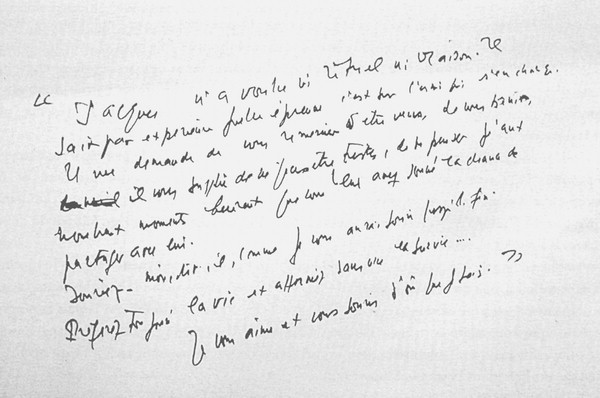 « Jacques n'a voulu ni rituel ni oraison. Il
sait par expérience quelle épreuve c'est pour l'ami qui s'en charge.
Il me demande de vous remercier d'être venus, de vous bénir,
il vous supplie de ne pas être tristes, de ne penser qu'aux
nombreux moments heureux que vous lui avez donné la chance de
partager avec lui.
Souriez-moi, dit-il, comme je vous aurai souri jusqu'à la fin.
Préférez toujours la vie et affirmez sans cesse la survie ...
Je vous aime et vous souris d'où que je sois. »